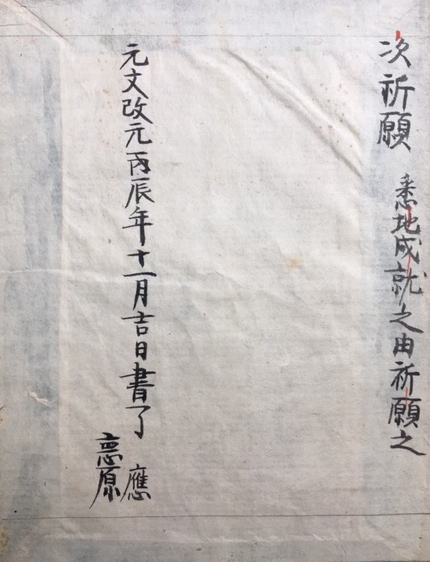 次祈願 悉地成就之由祈願之
元文改元丙辰年十一月吉日書了
應
原